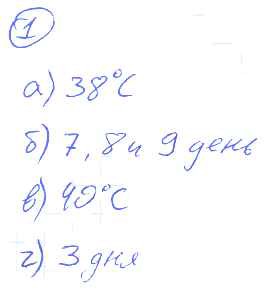 1
а) 38°С
б) 7, 8 и 9 день
в) 40°С
г) 3 дня